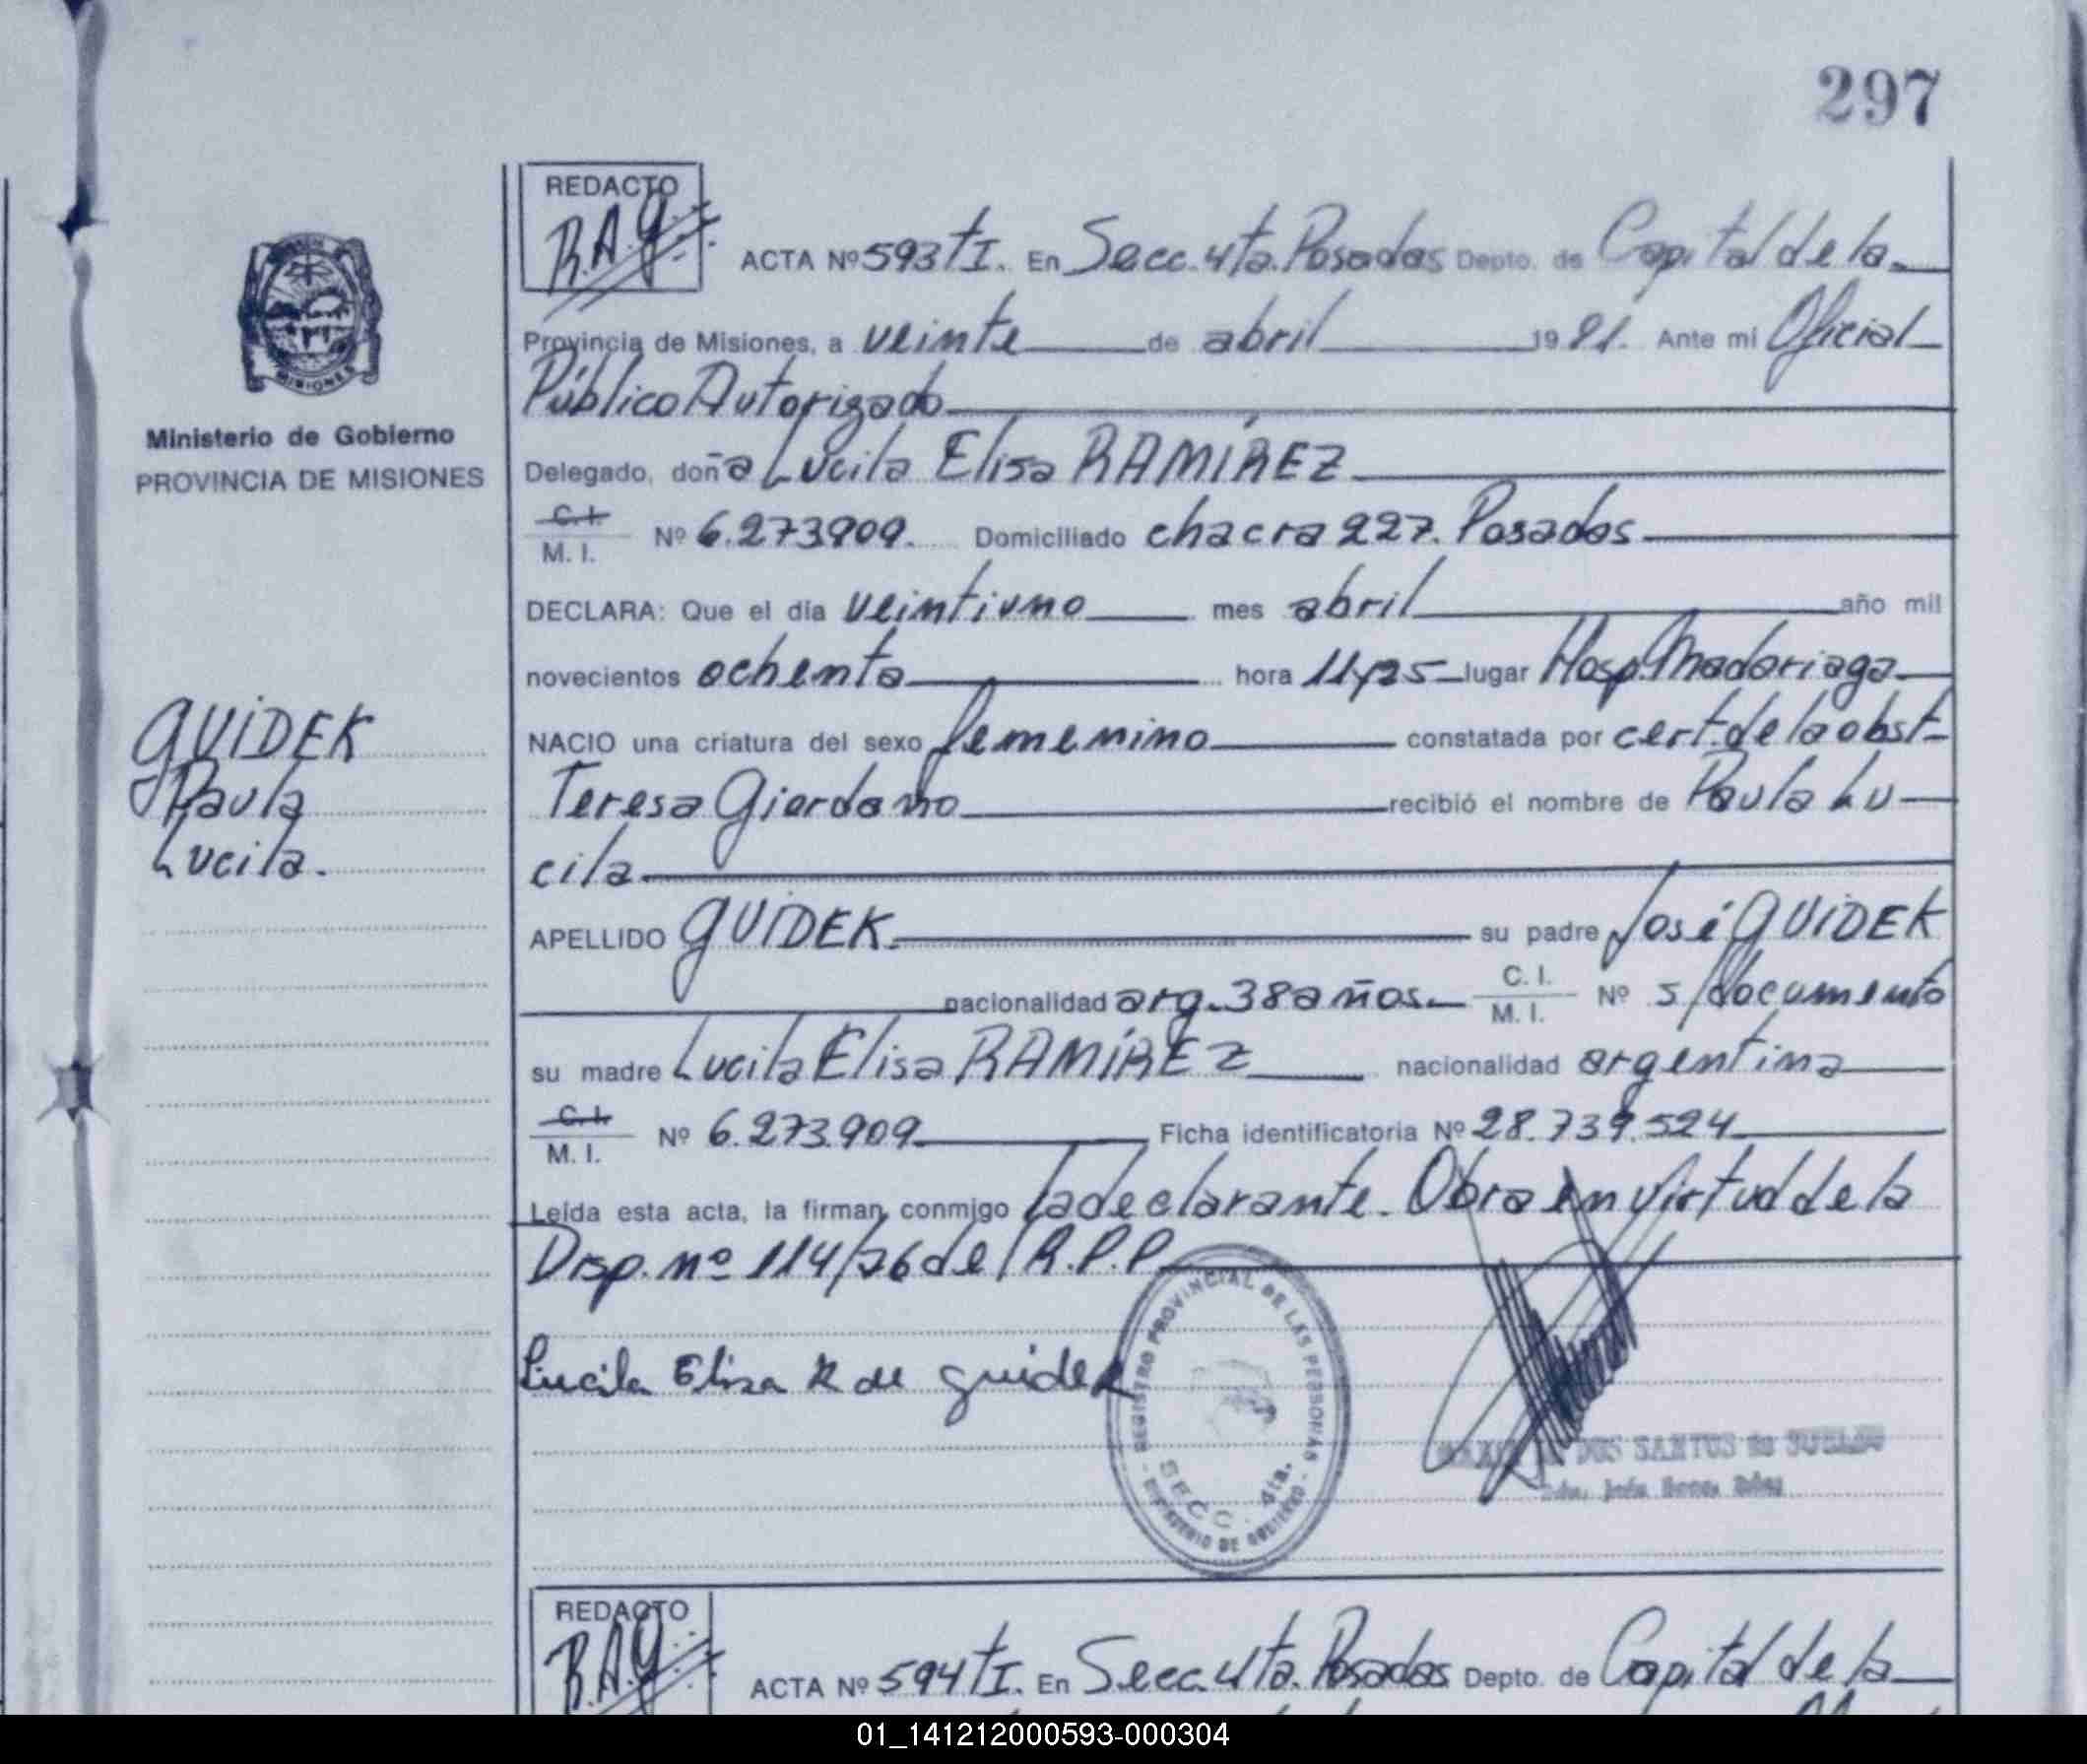 297
REDACTO
B.A.G.
ACTA Nº 593 tI. En Secc. 4ta. Posadas Depto. de Capital de la
MISIONES
Provincia de Misiones, a veinte de abril 1981. Ante mi Oficial
Público Autorizado
Ministerio de Gobierno
PROVINCIA DE MISIONES
Delegado, doña Lucila Elisa RAMÍREZ
C.I.
M. I. Nº 6.273909. Domiciliado chacra 227. Posadas
DECLARA: Que el día veintiuno mes abril año mil
novecientos ochenta hora 11y25 lugar Hosp. Madariaga
GUIDEK
Paula
Lucila.
NACIO una criatura del sexo femenino constatada por cert. de la obst-
Teresa Giordano recibió el nombre de Paula Lu
cila.
APELLIDO GUIDEK. su padre José GUIDEK
nacionalidad arg. 38 años. C. I.
M. I. Nº s/documento
su madre Lucila Elisa RAMÍREZ nacionalidad argentina
C.I.
M. I. Nº 6.273.909 Ficha identificatoria Nº 28.739.524
Leída esta acta, la firman conmigo la declarante. Obra en virtud de la
Disp. nº 114/76 del R.P.P.
Lucila Elisa R de guidek
REGISTRO PROVINCIAL DE LAS PERSONAS
SECC. 4ta.
MINISTERIO DE GOBIERNO
DOS SANTOS de
REDACTO
B.A.G.
ACTA Nº 594 tI. En Secc. 4ta. Posadas Depto. de Capital de la
01_141212000593-000304